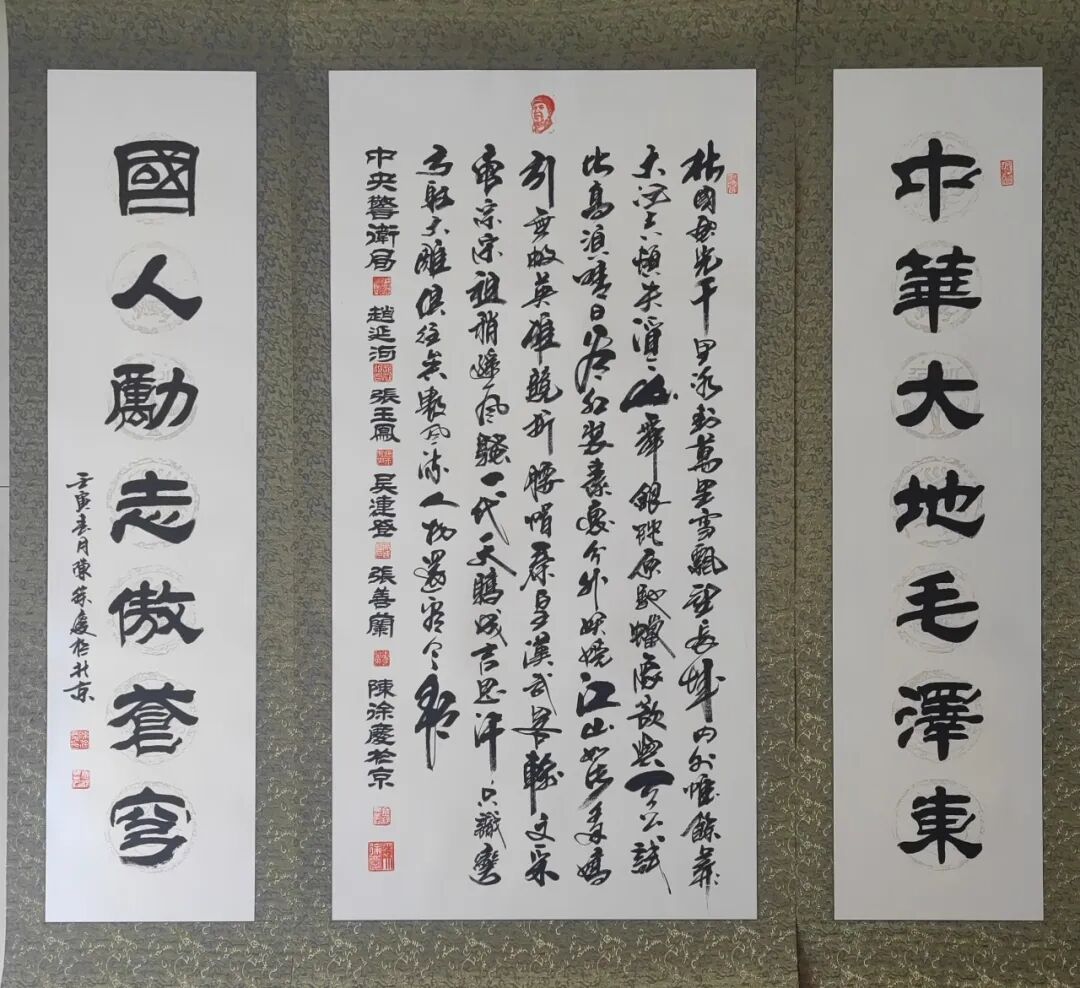 中華大地毛澤東
北國風光千里冰封萬里雪飄望長城內外惟餘莽
大河上下頓失滔〻山舞銀蛇原馳蠟象欲與天公試
比高須晴日看紅裝素裹分外妖嬈江山如此多嬌
引無數英雄競折腰惜秦皇漢武略輸文采
唐宗宋祖稍遜風騷一代天驕成吉思汗只識彎
弓射大雕俱往矣數風流人物還看今朝
中央警衛局 趙延河 張玉鳳 吳連登 張善蘭 陳涂慶於京
國人勵志傲蒼穹
壬寅春月陳涂慶於北京